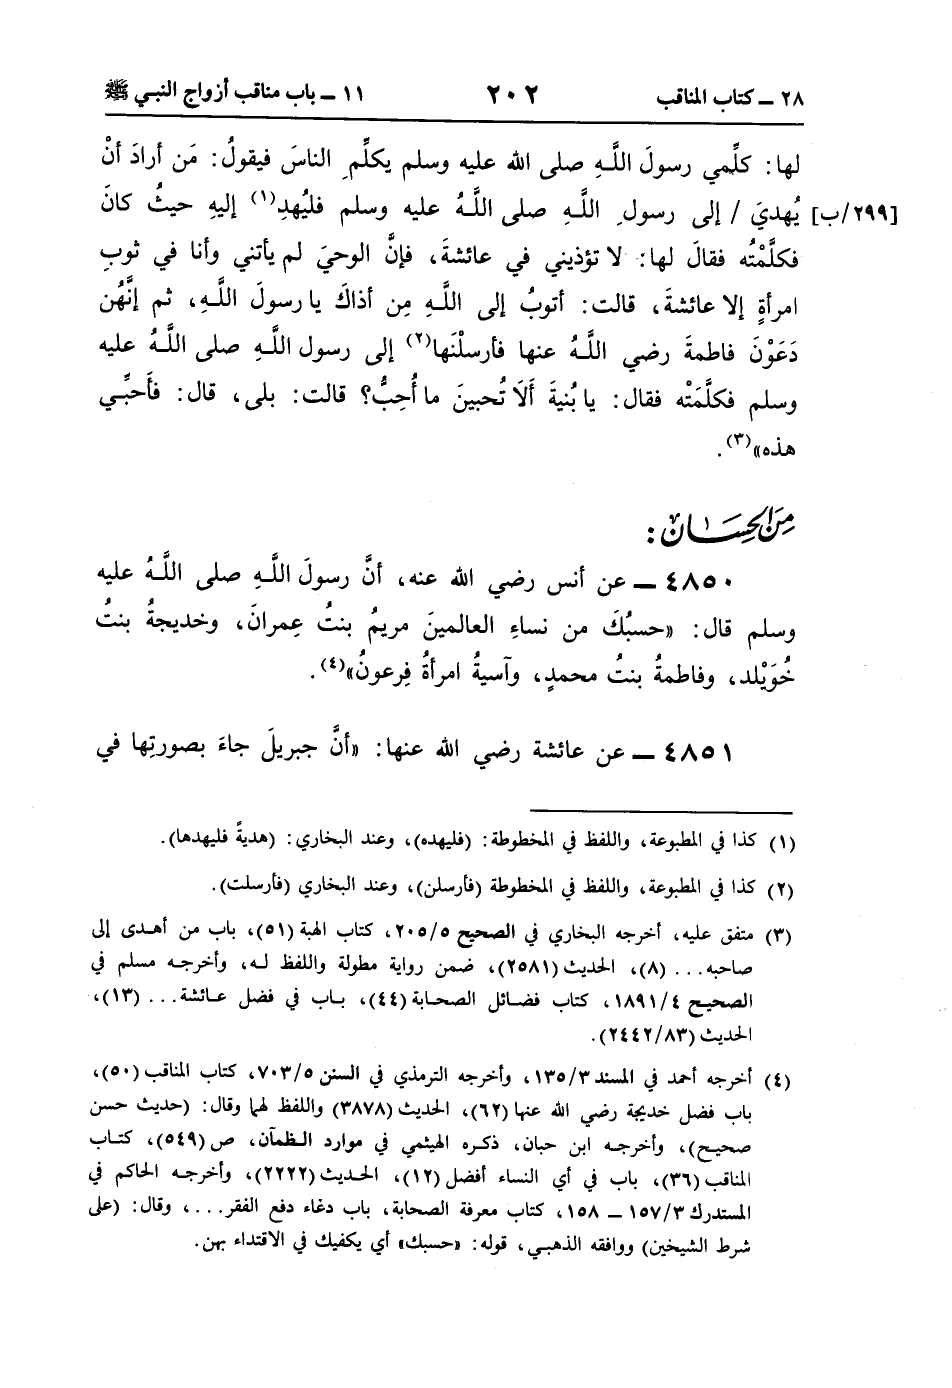 ٢٨ ــ كتاب المناقب ٢٠٢ ١١ ــ باب مناقب أزواج النبي ﷺ
لها: كلِّمي رسولَ اللَّـهِ صلى الله عليه وسلم يكلِّمِ الناسَ فيقولُ: مَن أرادَ أنْ
[٢٩٩/ب] يُهديَ / إلى رسولِ اللَّـهِ صلى اللَّـهُ عليه وسلم فليُهدِ(١) إليهِ حيثُ كانَ
فكلَّمْتُه فقالَ لها: لا تؤذيني في عائشةَ، فإنَّ الوحيَ لم يأتني وأنا في ثوبِ
امرأةٍ إلا عائشةَ، قالت: أتوبُ إلى اللَّـهِ مِن أذاكَ يا رسولَ اللَّـهِ، ثم إنَّهُن
دَعَوْنَ فاطمةَ رضي اللَّـهُ عنها فأرسلْنَها(٢) إلى رسول اللَّـهِ صلى اللَّـهُ عليه
وسلم فكلَّمَتْه فقال: يا بُنيةَ أَلَا تُحبينَ ما أُحِبُّ؟ قالت: بلى، قال: فأَحبِّي
هذه»(٣).
مِنَ الحِسَان:
٤٨٥٠ ــ عن أنس رضي الله عنه، أنَّ رسولَ اللَّـهِ صلى اللَّـهُ عليه
وسلم قال: «حسبُكَ من نساءِ العالمينَ مريمُ بنتُ عِمرانَ، وخديجةُ بنتُ
خُوَيْلد، وفاطمةُ بنتُ محمدٍ، وآسيةُ امرأةُ فِرعونُ»(٤).
٤٨٥١ ــ عن عائشة رضي الله عنها: «أنَّ جبريلَ جاءَ بصورتِها في
(١) كذا في المطبوعة، واللفظ في المخطوطة: (فليهده)، وعند البخاري: (هديةً فليهدها).
(٢) كذا في المطبوعة، واللفظ في المخطوطة (فأرسلن)، وعند البخاري (فأرسلت).
(٣) متفق عليه، أخرجه البخاري في الصحيح ٢٠٥/٥، كتاب الهبة (٥١)، باب من أهدى إلى
صاحبه... (٨)، الحديث (٢٥٨١)، ضمن رواية مطولة واللفظ له، وأخرجه مسلم في
الصحيح ١٨٩١/٤، كتاب فضائل الصحابة (٤٤)، باب في فضل عائشة... (١٣)،
الحديث (٢٤٤٢/٨٣).
(٤) أخرجه أحمد في المسند ١٣٥/٣، وأخرجه الترمذي في السنن ٧٠٣/٥، كتاب المناقب (٥٠)،
باب فضل خديجة رضي الله عنها (٦٢)، الحديث (٣٨٧٨) واللفظ لهما وقال: (حديث حسن
صحيح)، وأخرجه ابن حبان، ذكره الهيثمي في موارد الظمآن، ص (٥٤٩)، كتاب
المناقب (٣٦)، باب في أي النساء أفضل (١٢)، الحديث (٢٢٢٢)، وأخرجه الحاكم في
المستدرك ١٥٧/٣ ــ ١٥٨، كتاب معرفة الصحابة، باب دغاء دفع الفقر...، وقال: (على
شرط الشيخين) ووافقه الذهبي، قوله: «حسبك» أي يكفيك في الاقتداء بهن.